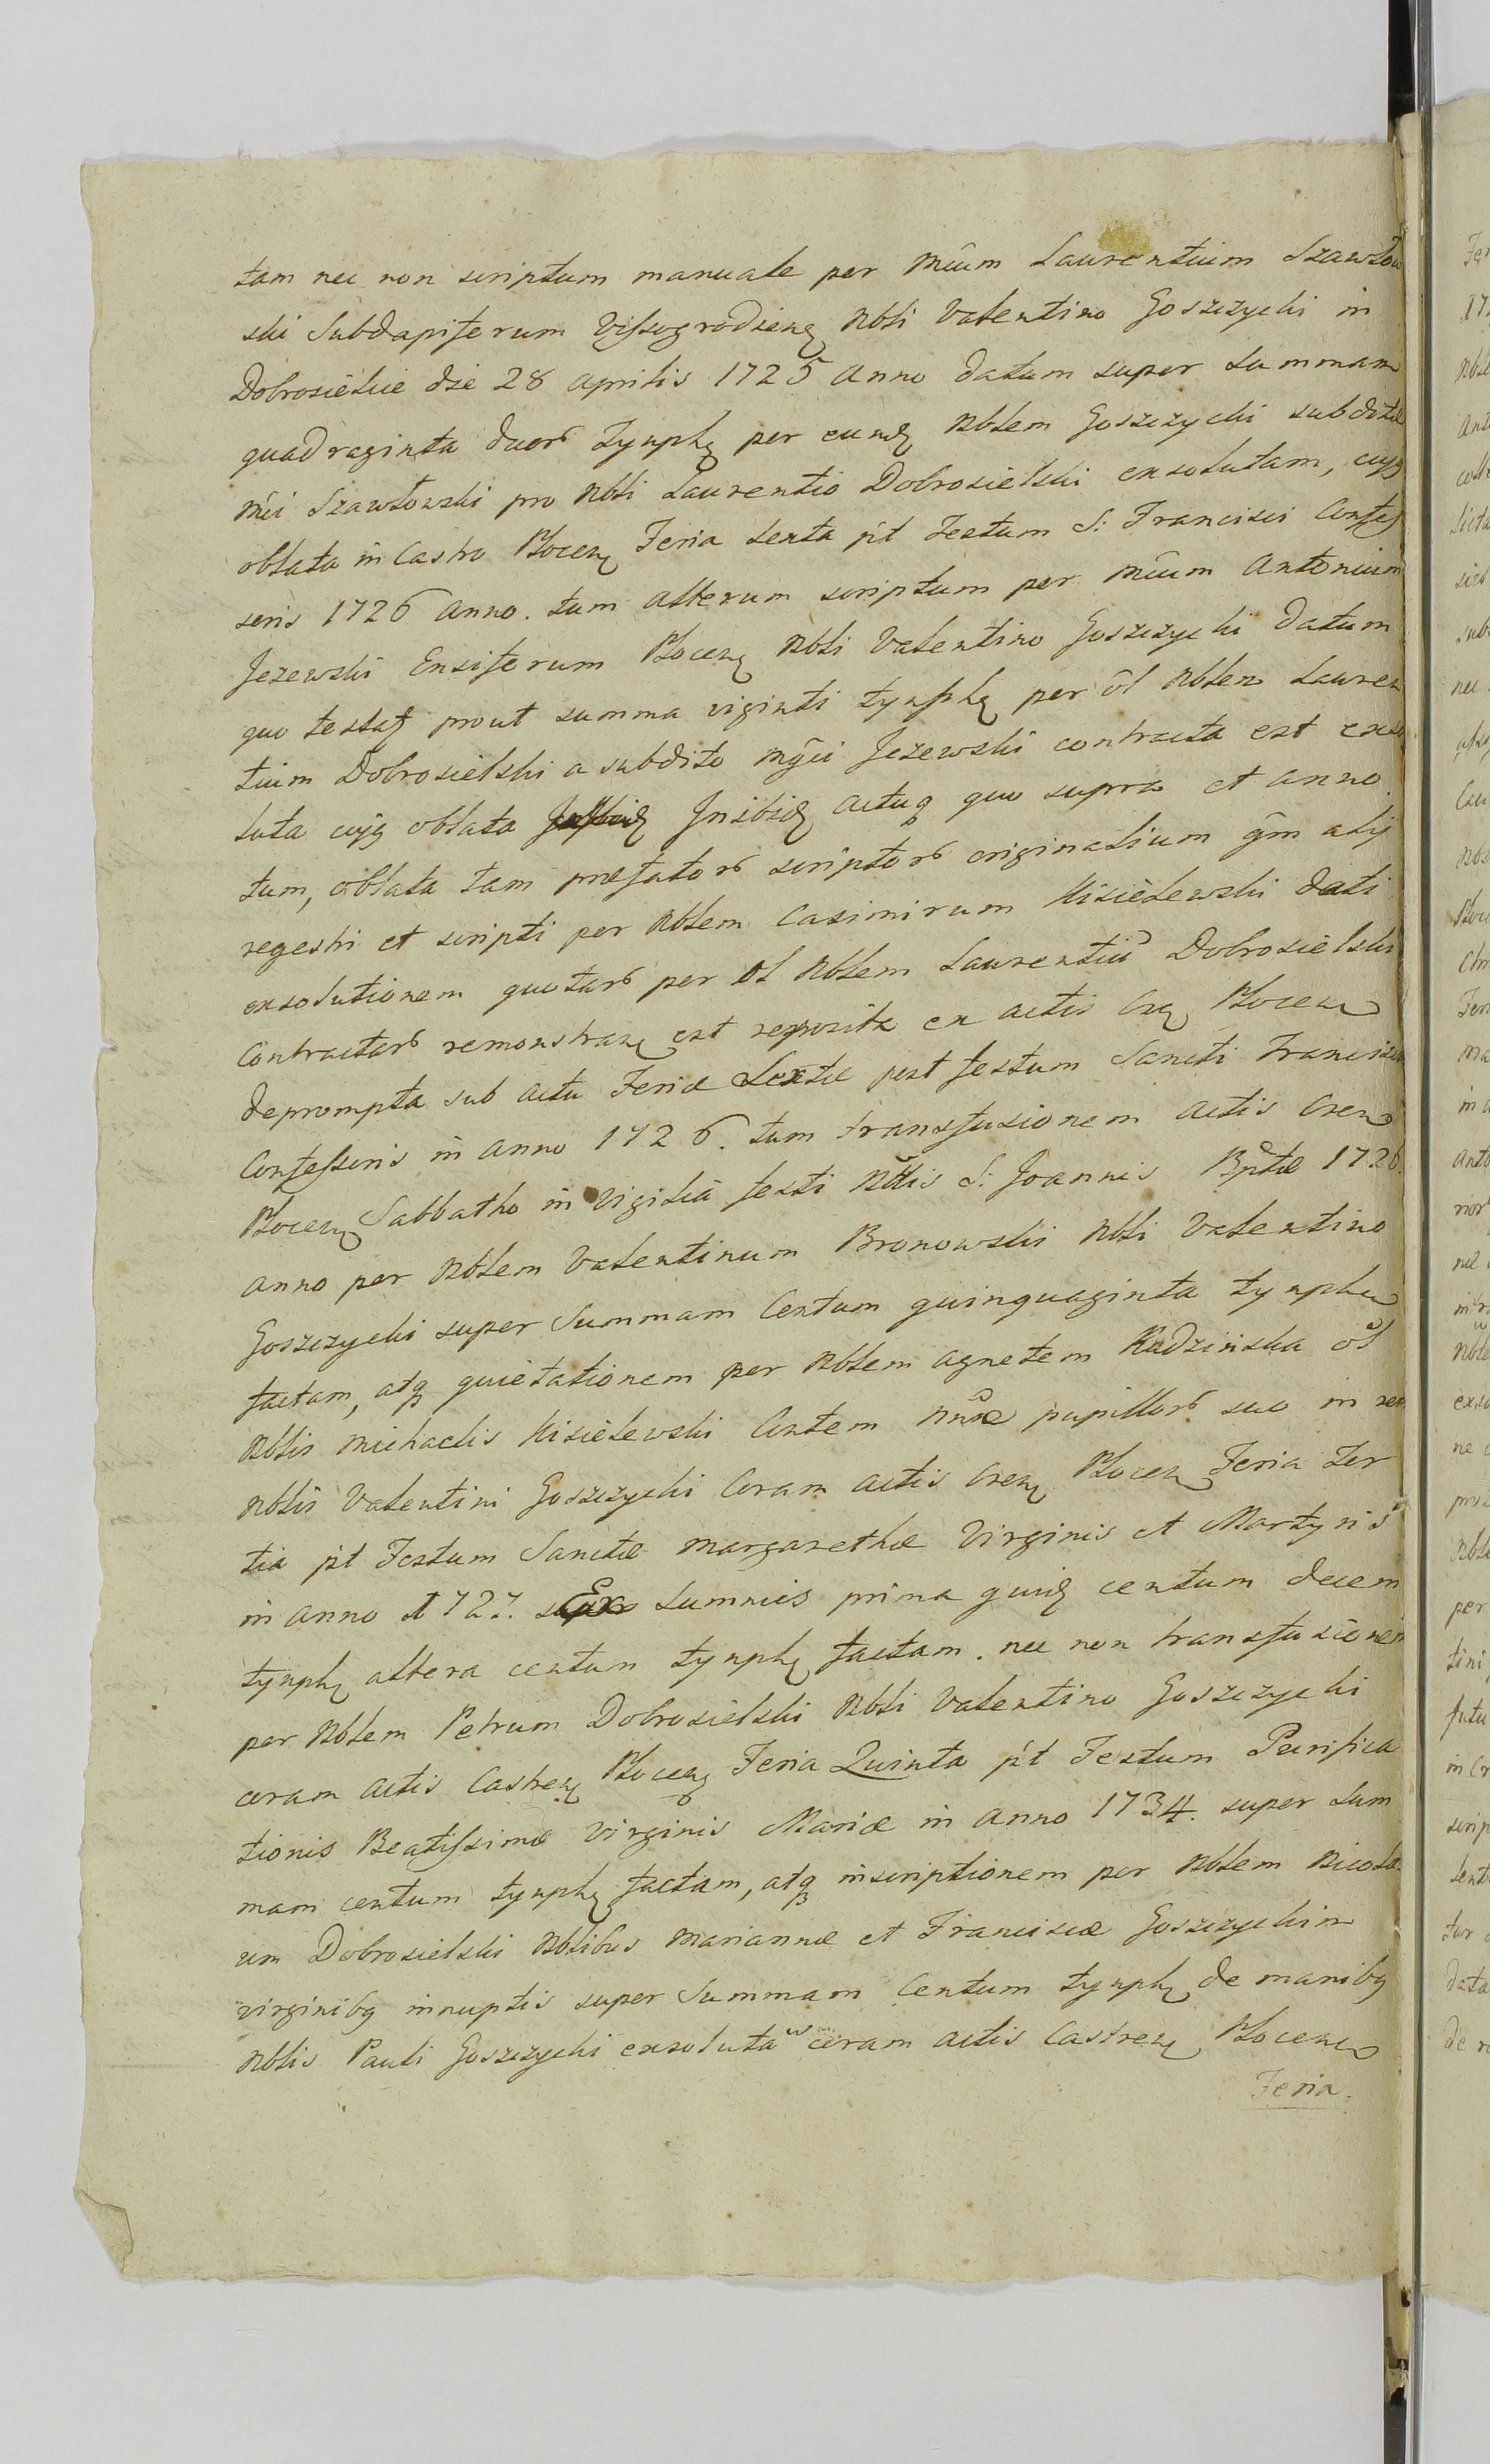 tam nec non scriptum manuale per Mcum Laurentium Szawłow
ski Subdapiferum Vissogrodienę Nbli Valentino Goszczycki in
Dobrosielice die 28 Aprilis 1725 Anno datum super summam
quadraginta duor Tynphę per eundę Nblem Goszczycki subditæ
Mci Szawłowski pro Nbli Laurentio Dobrosielski exsolutam, cujg
oblata in Castro Płocenę Feria Sexta pt Festum S: Francisci Confes
soris 1726 Anno. tum alterum scriptum per Mcum Antonium
Jezewski Ensiferum Płocenę Nbli Valentino Goszczycki datum
quo testat prout summa viginti tynphę per ol Nblem Lauren
tium Dobrosielski a subdito Mgci Jezewski contracta est exso
luta cujg oblata Inibidę actuq quo supra et anno
tum, oblata tam præfator scriptor originalium qm alij
regestri et scripti per Nblem Casimirum Kisielewski dati
exsolutionem quotar per ol Nblem Laurentiu Dobrosielski
Contractar remonstranę est reposita ex actis Crę Płocenę
deprompta sub actu Feriæ Sextæ post festum Sancti Francisci
Confessoris in anno 1726. tum transfusionem actis Crenę
Płocenę Sabbatho in Vigilia festi Nttis S: Joannis Bptæ 1726.
Anno per Nblem Valentinum Bronowski Nbli Valentino
Goszczycki super Summam Centum quinquaginta tynphę
factam, atq quietationem per Nblem Agnetem Radzinska ol
Nblis Michaelis Kisielewski Cortem nroe pupillor suo in rem
Nblis Valentini Goszczycki Coram actis Crenę Płocenę Feria Ter
tia pt Festum Sanctæ Margarethæ Virginis et Martyris
in Anno 1727. Ex summis prima quidę centum decem
tynphę altera centum tynphę factam. nec non transfusionem
per Nblem Petrum Dobrosielski Nbli Valentino Goszczycki
coram actis Castrenę Płocenę Feria Quinta pt Festum Purifica
tionis Beatissimæ Virginis Mariæ in anno 1734. super Sum
mam centum tynphę factam, atq inscriptionem per Nblem Nicola
um Dobrosielski Nblibus Mariannæ et Franciscæ Goszczyckim
virginibq innuptis super Summam Centum tynphę de manibq
Nblis Pauli Goszczycki exsoluta coram actis Castrenę Płocenę
Feria.